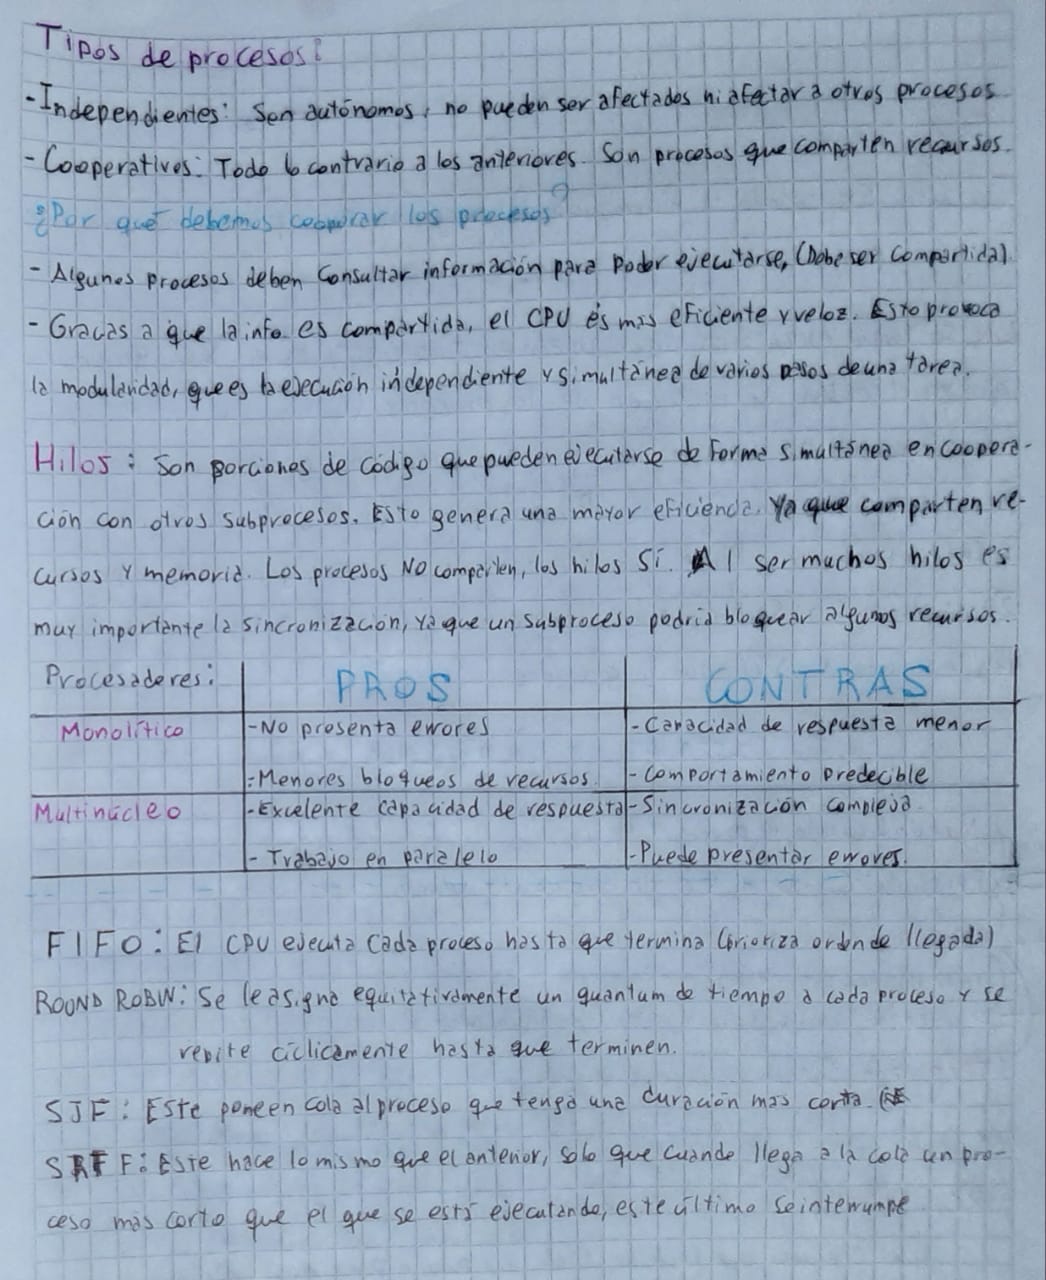 Tipos de procesos:
-Independientes: Son autónomos, no pueden ser afectados ni afectar a otros procesos
-Cooperativos: Todo lo contrario a los anteriores. Son procesos que comparten recursos.
¿Por qué debemos cooperar los procesos?
- Algunos procesos deben consultar información para poder ejecutarse, (Debe ser compartida)
- Gracias a que la info es compartida, el CPU es más eficiente y veloz. Esto provoca
la modularidad, que es la ejecución independiente y simultánea de varios pasos de una tarea.
Hilos: Son porciones de código que pueden ejecutarse de forma simultánea en coopera-
ción con otros subprocesos. Esto genera una mayor eficiencia. Ya que comparten re-
cursos y memoria. Los procesos NO comparten, los hilos SÍ. Al ser muchos hilos es
muy importante la sincronización, ya que un subproceso podría bloquear algunos recursos.
Procesadores: PROS CONTRAS
Monolítico -No presenta errores -Capacidad de respuesta menor
-Menores bloqueos de recursos. -Comportamiento predecible
Multinúcleo -Excelente capacidad de respuesta -Sincronización compleja
-Trabajo en paralelo -Puede presentar errores.
FIFO: El CPU ejecuta cada proceso hasta que termina (prioriza orden de llegada)
ROUND ROBIN: Se le asigna equitativamente un quantum de tiempo a cada proceso y se
repite cíclicamente hasta que terminen.
SJF: Este pone en cola al proceso que tenga una duración más corta.
SRTF: Este hace lo mismo que el anterior, solo que cuando llega a la cola un pro-
ceso más corto que el que se está ejecutando, este último se interrumpe